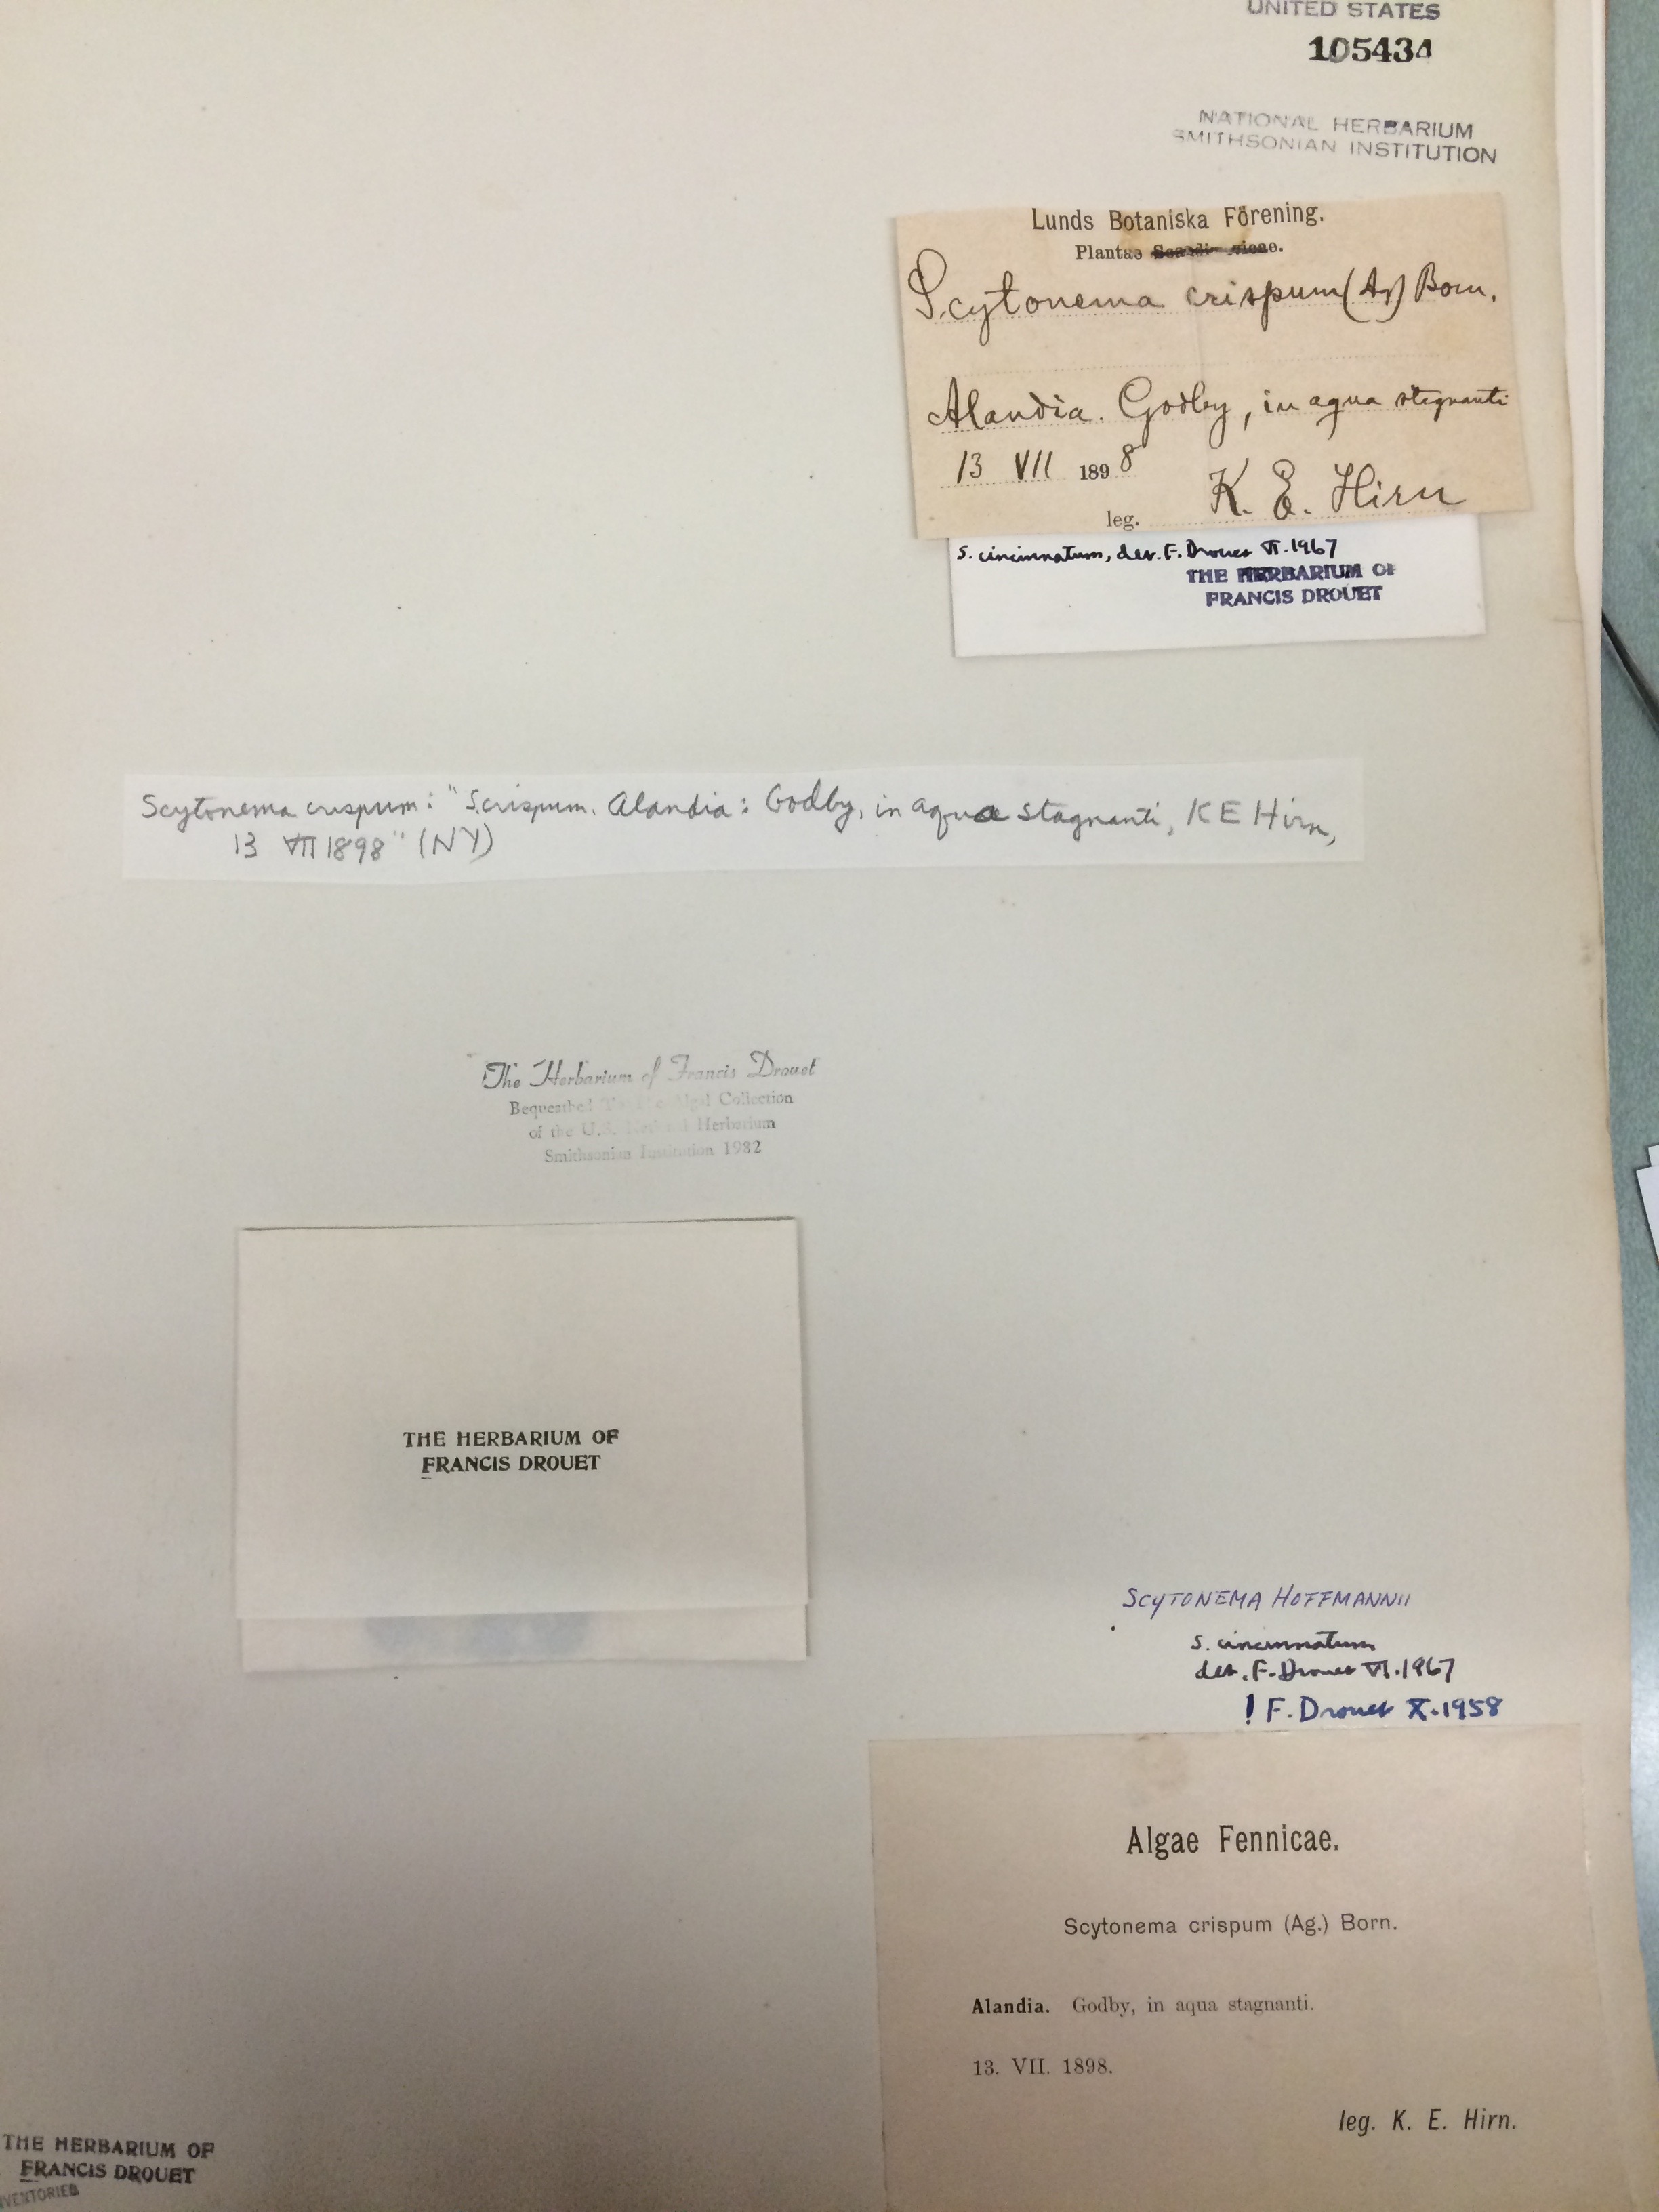 UNITED STATES
105434
NATIONAL HERBARIUM
SMITHSONIAN INSTITUTION
Lunds Botaniska Förening.
Plantae
Scytonema crispum (Ag) Born.
Alandia. Godby, in aqua stagnanti
13 VII 1898
leg. K. E. Hirn
S. cincinnatum, det. F. Drouet VI.1967
THE HERBARIUM OF
FRANCIS DROUET
Scytonema crispum: "S. crispum. Alandia: Godby, in aqua stagnanti, K E Hirn,
13 VII 1898" (NY)
The Herbarium of Francis Drouet
Bequeathed To the Algal Collection
of the U.S. National Herbarium
Smithsonian Institution 1982
THE HERBARIUM OF
FRANCIS DROUET
SCYTONEMA HOFFMANNII
S. cincinnatum
det. F. Drouet VI.1967
! F. Drouet X.1958
Algae Fennicae.
Scytonema crispum (Ag.) Born.
Alandia. Godby, in aqua stagnanti.
13. VII. 1898.
leg. K. E. Hirn.
THE HERBARIUM OF
FRANCIS DROUET
INVENTORIED